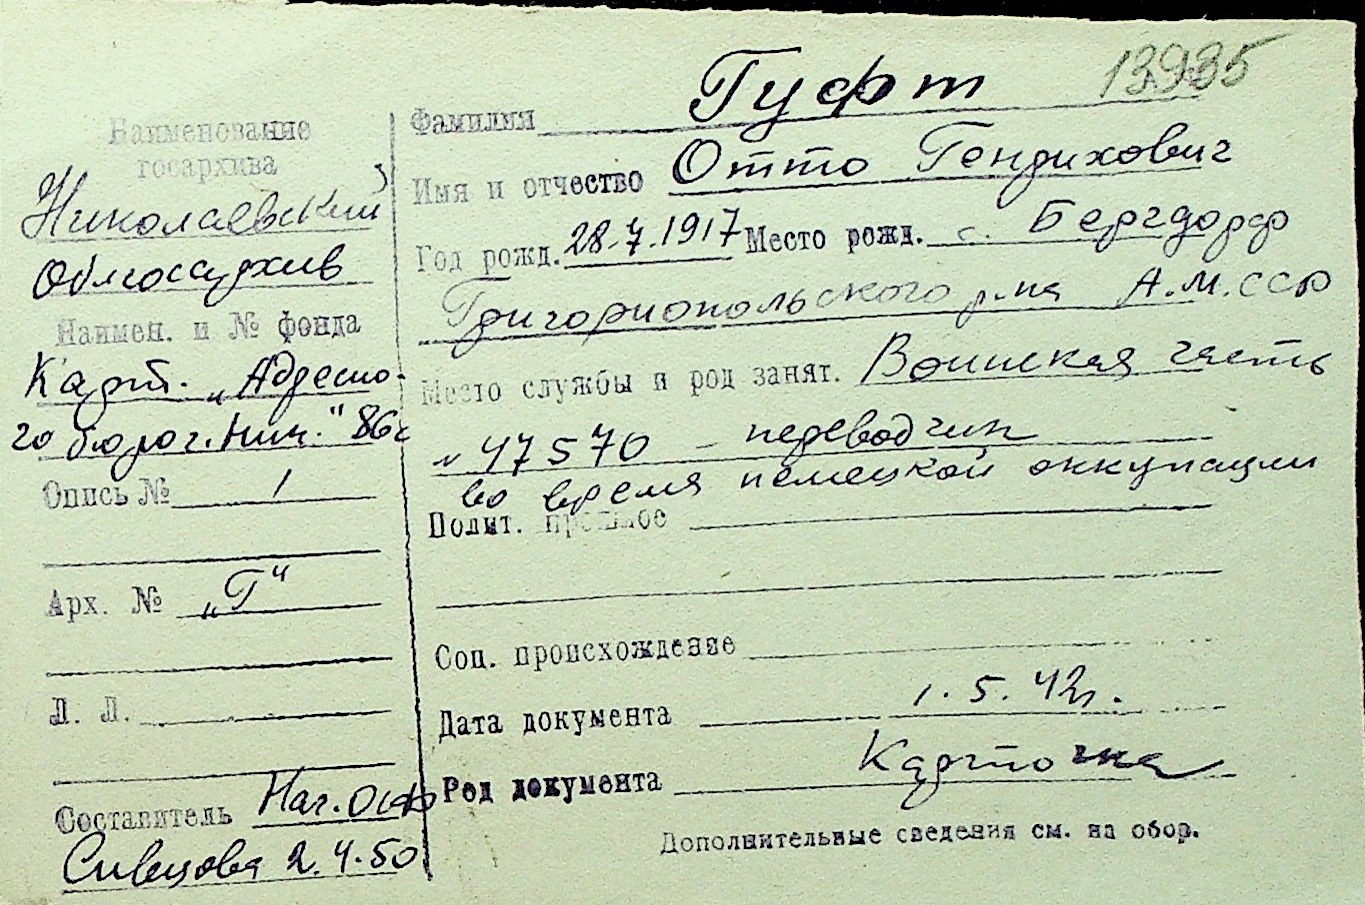 13935
Наименование
госархива
Николаевский
Облгосархив
Наимен. и № фонда
Карт. „Адресно-
го бюро г. Ник." 86с
Опись № 1
Арх. № „Г"
Л. Л.
Составитель Нач. ОСФ
Сивцова 2.4.50
Фамилия Гуфт
Имя и отчество Отто Гендихович
Год рожд. 28.7.1917 Место рожд. с. Бергдорф
Григориопольского р-на А.М.ССР
Место службы и род занят. Воинская часть
№ 47570 – переводчик
во время немецкой оккупации
Полит. прошлое
Соц. происхождение
Дата документа 1.5.42г.
Род документа Карточка
Дополнительные сведения см. на обор.